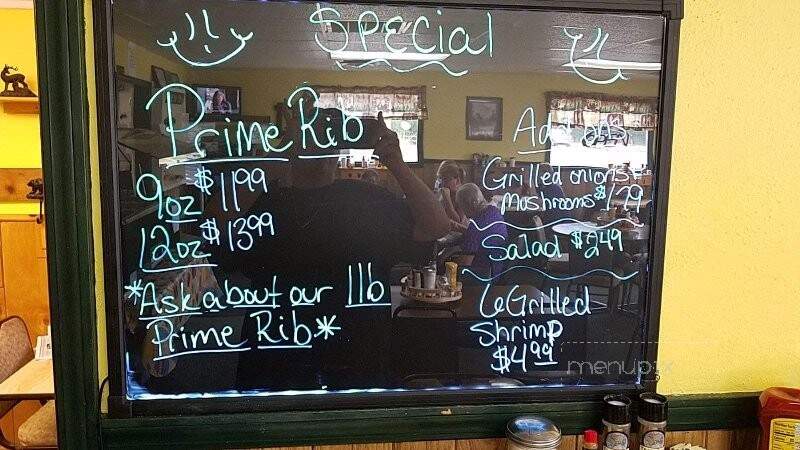 Special
Prime Rib
9oz $11.99
12oz $13.99
*Ask about our 1lb
Prime Rib*
Add ons
Grilled onions +
Mushrooms $1.79
Salad $2.49
6 Grilled
Shrimp
$4.99
menupix